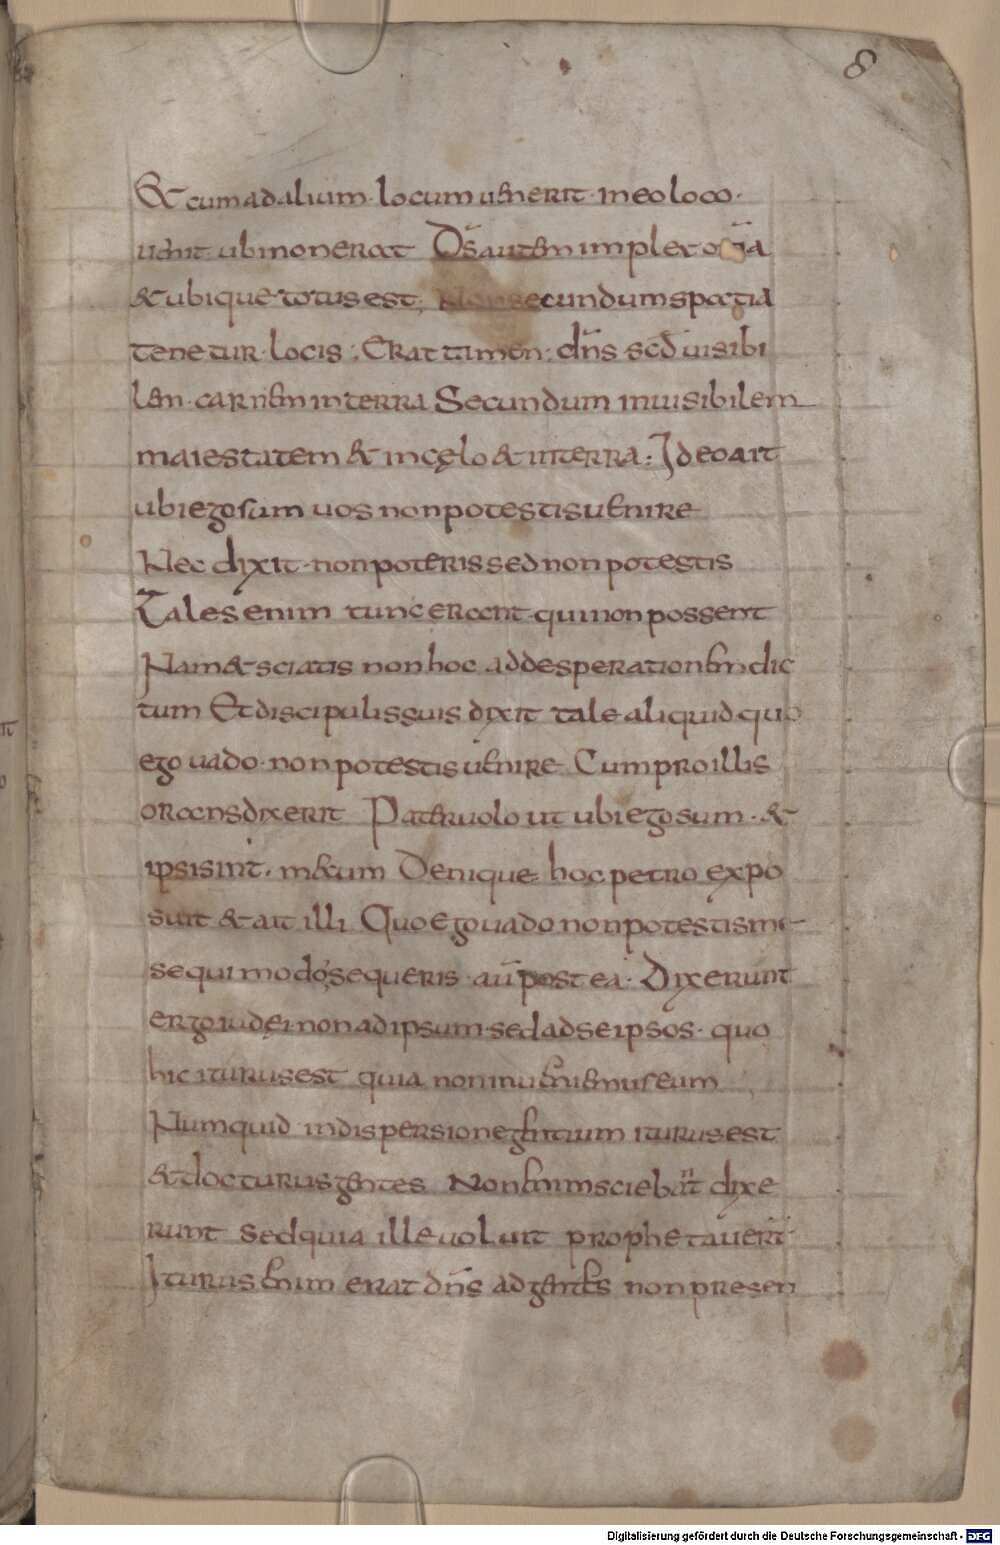 8
&cumadalium·locumuenerit·ineoloco·
uenit·ubinonerat D̄s̄autemimplet om̄ia
&ubiquetotusest; Nonsecundumspatia
tenetur·locis; Erat tamen; dn̄s sc̄d uisibi
lem·carneminterra Secundum inuisibilem
maiestatem & incęlo & interra: Ideoait
ubiegosum uos nonpotestisuenire
Nec dixit·nonpoterissednonpotestis
Talesenim tuncerant·quinonpossent
Nam&sciatis nonhoc addesperationemdic
tum Etdiscipulissuis dixit talealiquidquo
ego uado·nonpotestisuenire Cumproillis
oransdixerit Pateruolo ut ubiegosum·&
ipsisint·mecum Denique hocpetro expo
suit &ait illi Quoegouadononpotestisme
sequimodo;sequeris·aūpostea·Dixerunt
ergoiudęinonadipsum·sedadseipsos·quo
hic iturusest quia noninueniemuseum
Numquid indispersionegentium iturusest
&docturusgentes Nonenimsciebant dixe
runt Sedquia illeuoluit prophetauerunt
Iturusenim erat dn̄s adgentes nonpresen
Digitalisierung gefördert durch die Deutsche Forschungsgemeinschaft - DFG